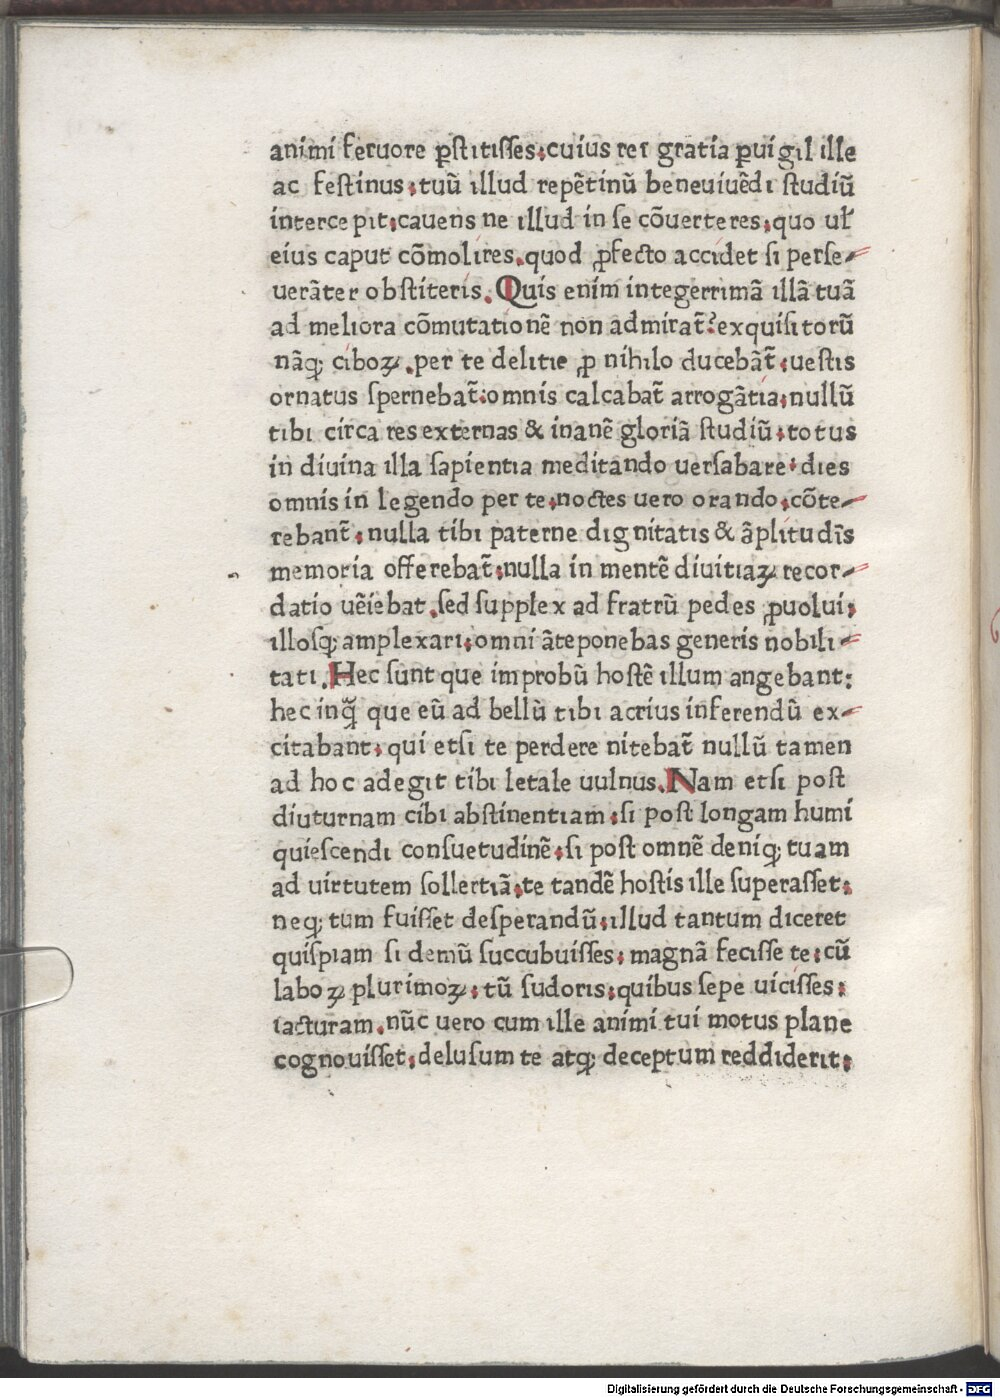 animi feruore p̱stitiſſes:cuius rei gratia p̱uigil ille
ac feſtinus:tuũ illud repẽtinũ beneuiuẽdi ſtudiũ
intercepit:cauens ne illud in ſe cõuerteres:quo ul̃
eius caput cõmolires.quod ꝓfecto accidet ſi perſe-
uerãter obſtiteris.Quis enim integerrimã illã tuã
ad meliora cõmutationẽ non admirat̃?exquiſitorũ
nãqꝫ ciboꝝ.per te delitie ꝓ nihilo ducebãt̃:ueſtis
ornatus ſpernebat̃:omnis calcabat̃ arrogãtia:nullũ
tibi circa res externas & inanẽ gloriã ſtudiũ:totus
in diuina illa ſapientia meditando uerſabare:dies
omnis in legendo per te:noctes uero orando:cõte-
rebant̃:nulla tibi paterne dignitatis & ãplitudĩs
memoria offerebat̃:nulla in mentẽ diuitiaꝝ recor-
datio uẽiebat.ſed ſupplex ad fratrũ pedes ꝓuolui:
illoſqꝫ amplexari:omni ãteponebas generis nobili-
tati.Hec ſunt que improbũ hoſtẽ illum angebant:
hec inq̃ que eũ ad bellũ tibi acrius inferendũ ex-
citabant:qui etſi te perdere nitebat̃ nullũ tamen
ad hoc adegit tibi letale uulnus.Nam etſi poſt
diuturnam cibi abſtinentiam:ſi poſt longam humi
quieſcendi conſuetudinẽ:ſi poſt omnẽ deniqꝫ tuam
ad uirtutem ſollertiã:te tandẽ hoſtis ille ſuperaſſet:
neqꝫ tum fuiſſet deſperandũ:illud tantum diceret
quiſpiam ſi demũ ſuccubuiſſes:magnã feciſſe te:cũ
laboꝝ plurimoꝝ:tũ ſudoris:quibus ſepe uiciſſes:
iacturam.nũc uero cum ille animi tui motus plane
cognouiſſet:deluſum te atqꝫ deceptum reddiderit:
Digitalisierung gefördert durch die Deutsche Forschungsgemeinschaft - DFG